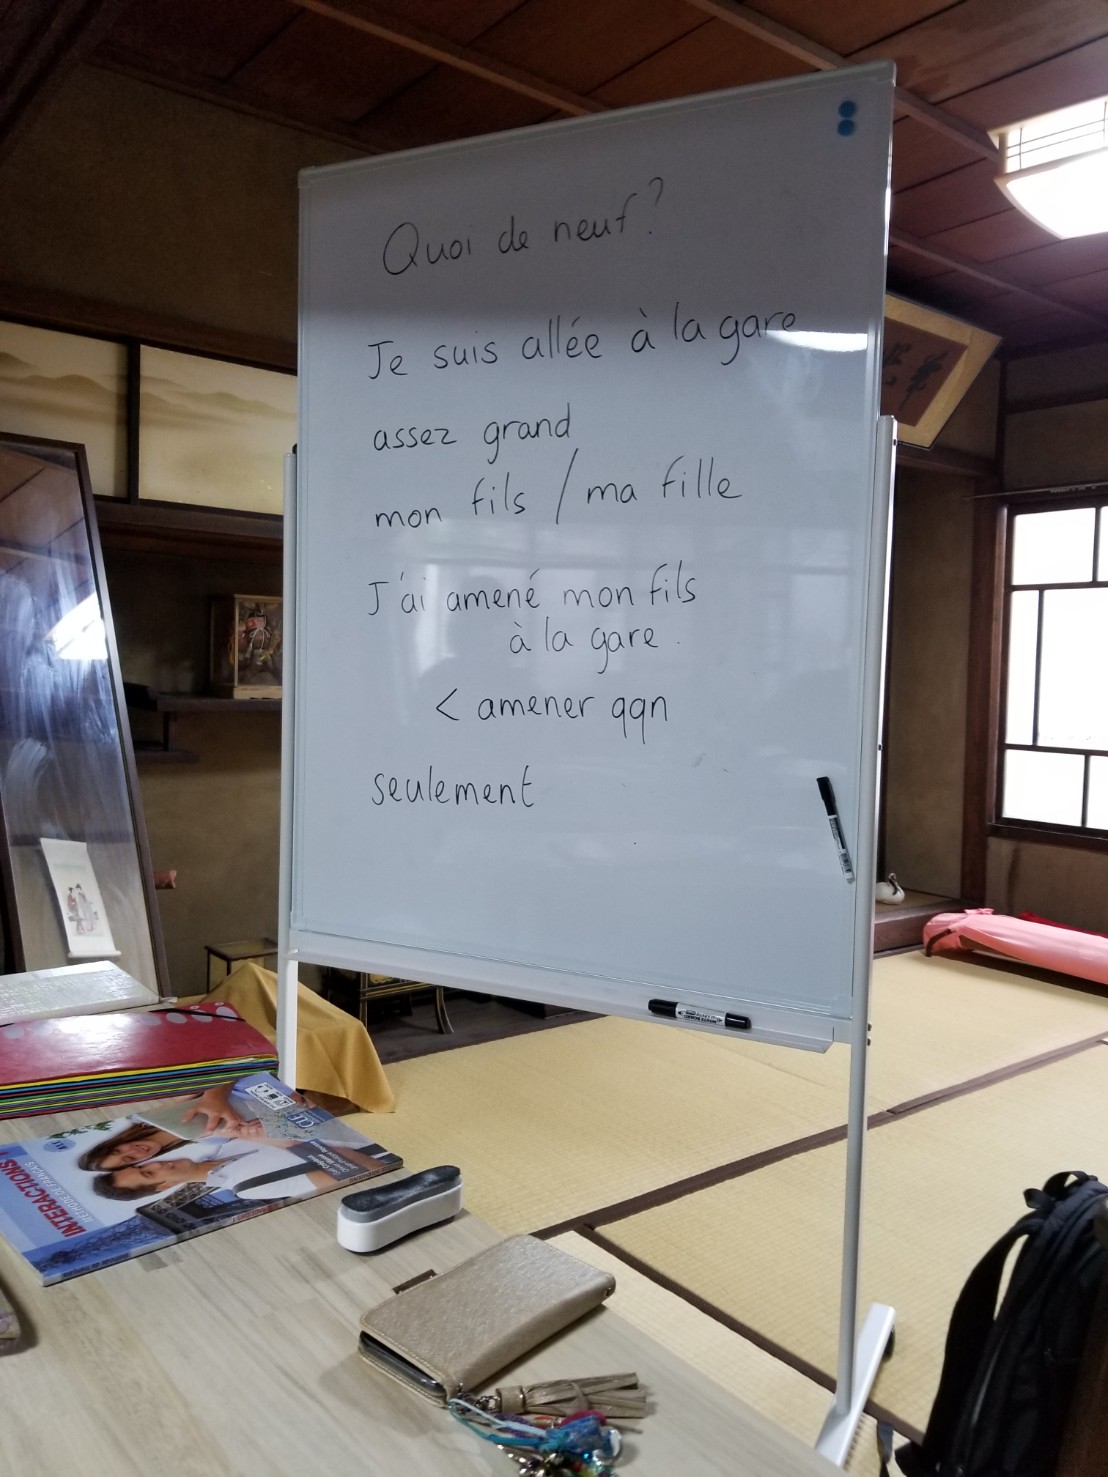 Quoi de neuf?
Je suis allée à la gare
assez grand
mon fils / ma fille
J'ai amené mon fils
à la gare.
< amener qqn
seulement
INTERACTIONS 1
MÉTHODE DE FRANÇAIS
CLE
A1.1